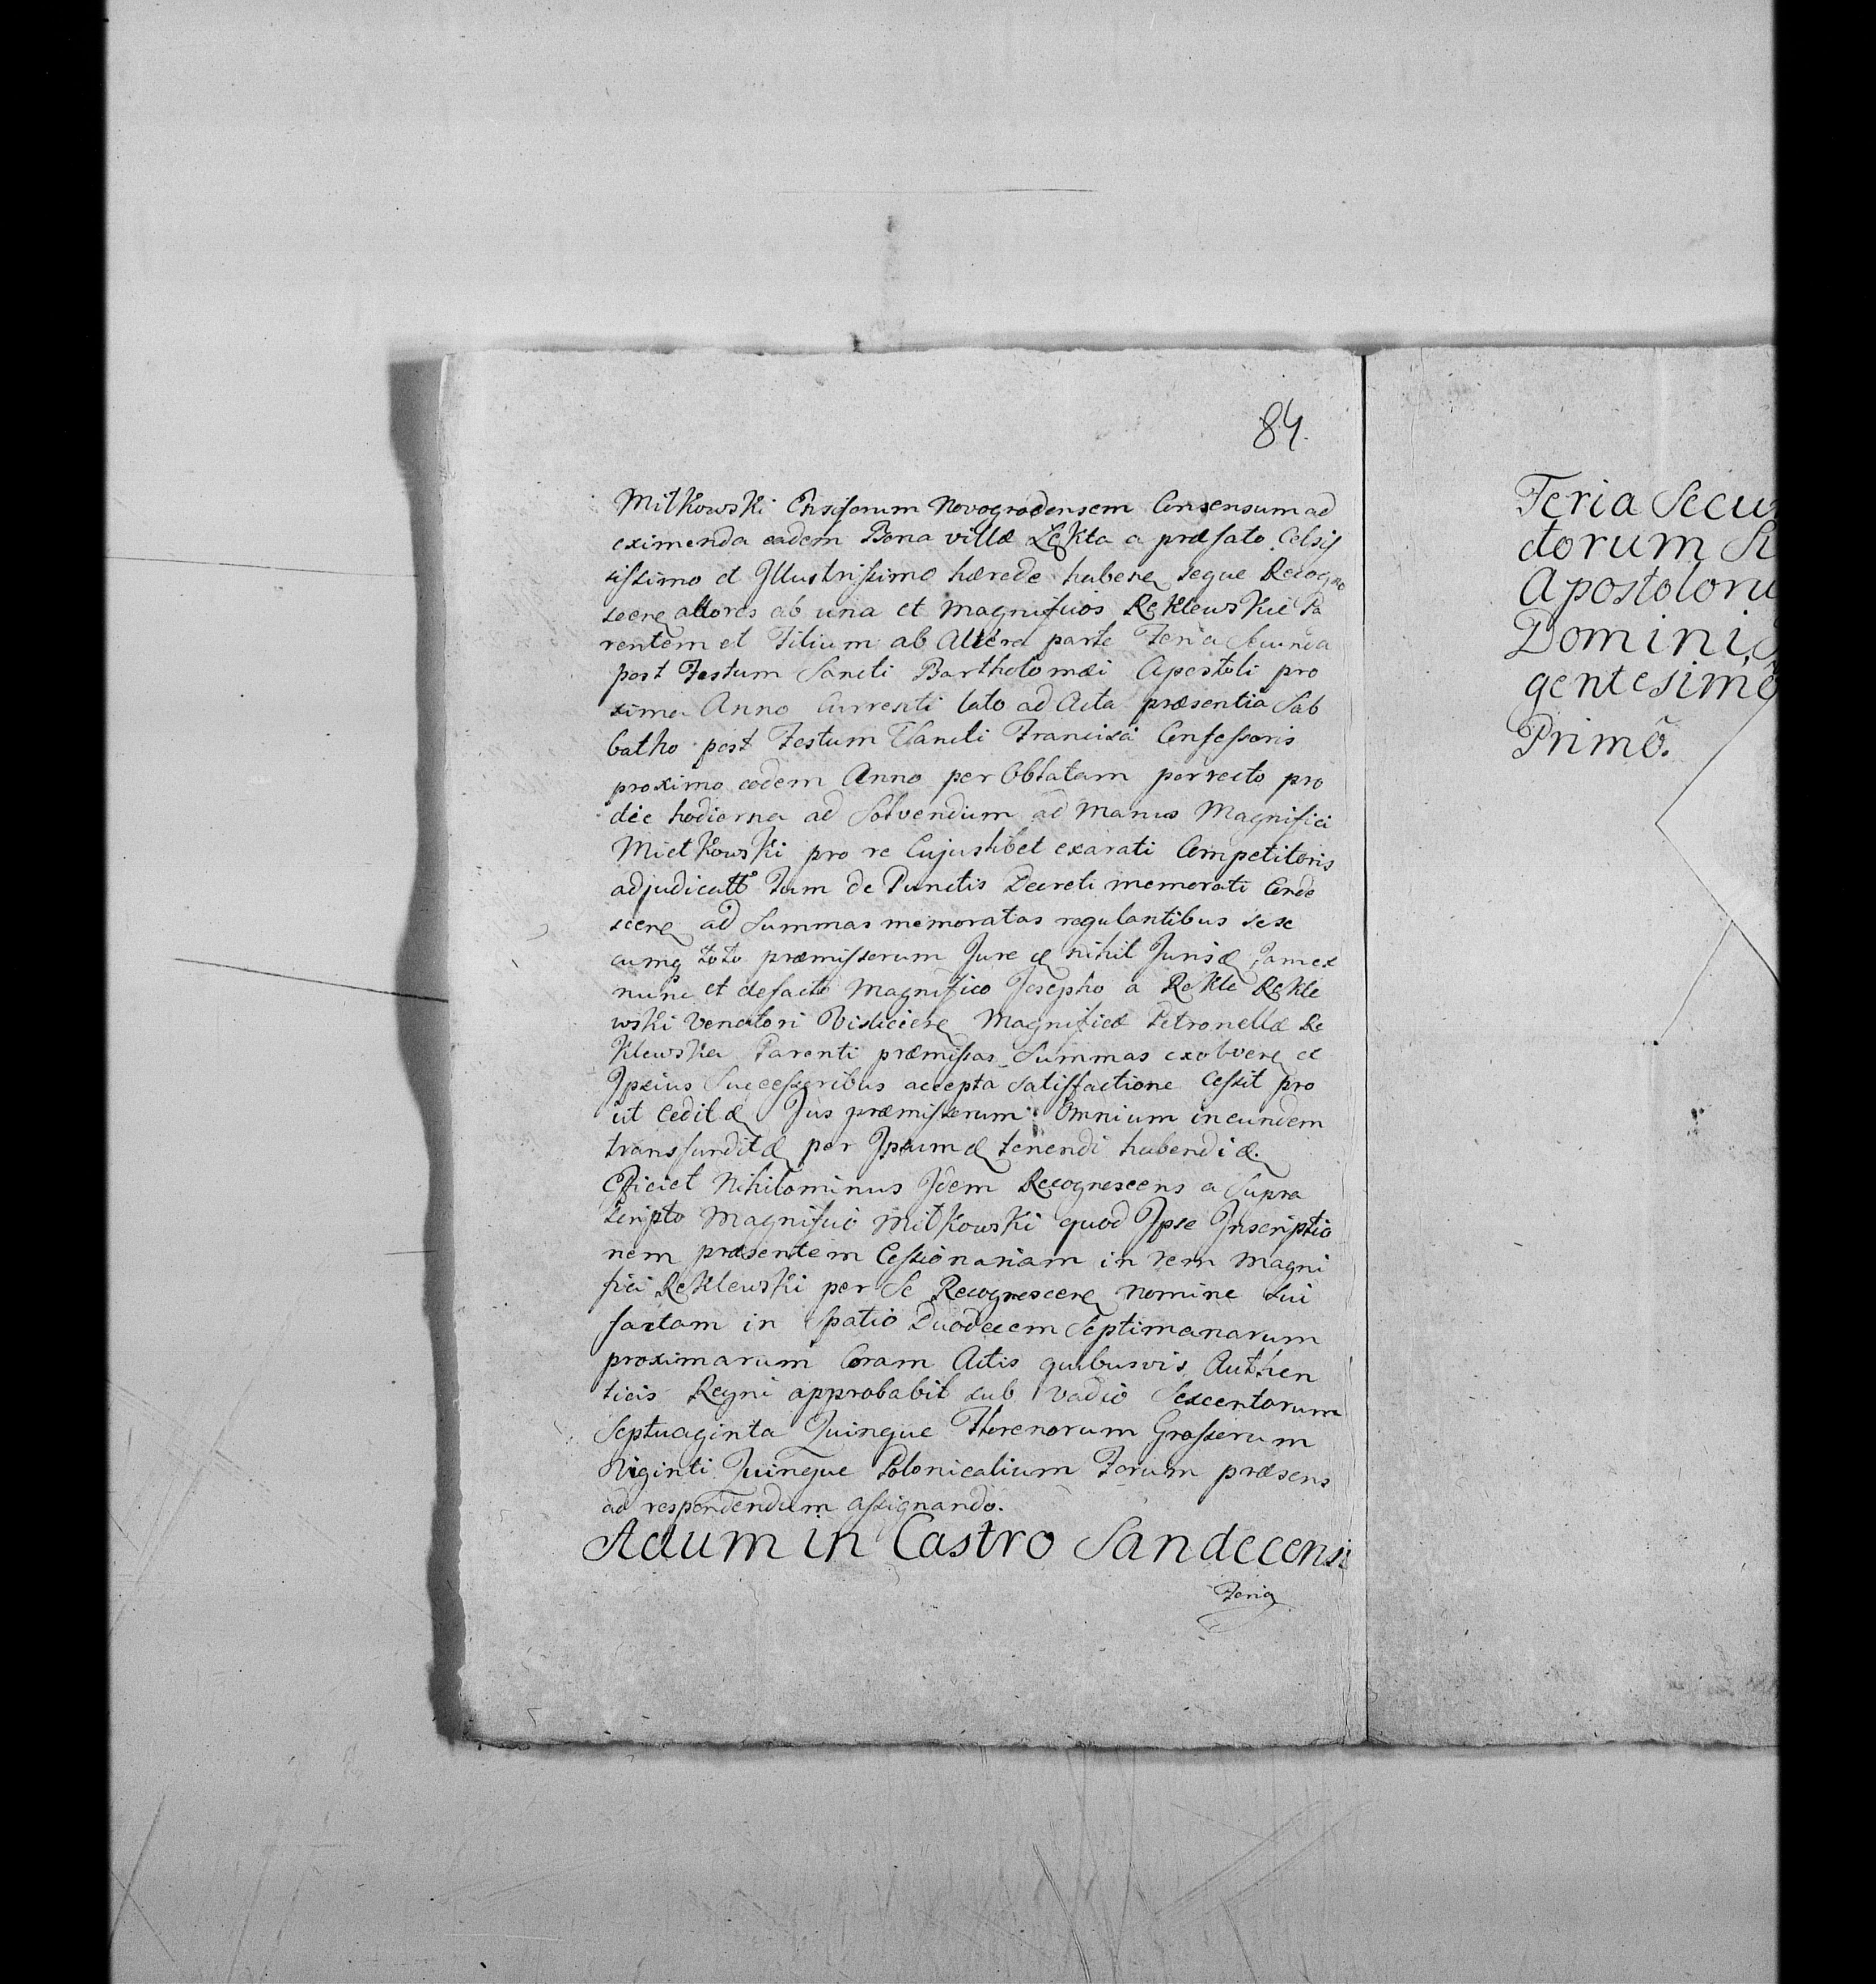 84.
Mitkowski Ensiferum Novogrodensem Consensum ad
eximenda eadem Bona villæ Łękta a præfato Celsis
sissimo et Illustrissimo hærede habere seque Recogno
scere actores ab una et Magnificos Reklewskie Pa
rentem et Filium ab Altera parte Feria Secunda
post Festum Sancti Bartholomæi Apostoli pro
xima Anno Currenti lato ad Acta præsentia Sab
batho post Festum Sancti Francisci Confessoris
proximo eodem Anno per Oblatam porrecto pro
die hodierna ad Solvendum ad Manus Magnifici
Mietkowski pro re Cujuslibet exarati Competitoris
adjudicatt Tum de Punctis Decreti memorati Conde
scere ad Summas memoratas regulantibus sese
cumq toto præmissorum Jure & nihil Juris & Jam ex
nunc et de facto Magnifico Josepho a Rekle Rekle
wski Venatori Visliciere Magnificæ Petronellæ Re
klewska Parenti præmissas Summas exolvere et
Ipsius Successoribus accepta satisfactione Cessit pro
ut Cedit & Jus præmissorum Omnium in eundem
transfundit & per Ipsum & tenendi habendi &.
Efficiet Nihilominus Idem Recognoscens a Supra
scripto Magnifico Mitkowski quod Ipse Inscriptio
nem præsentem Cessionariam in rem Magni
fici Reklewski per Se Recognoscere nomine Sui
factam in Spatio Duodecem Septimanarum
proximarum Coram Actis quibusvis Authen
ticis Regni approbabit sub vadio Sexcentorum
Septuaginta Quinque Florenorum Grossorum
Viginti Quinque Polonicalium Forum præsens
ad respondendum assignando.
Actum in Castro Sandecensi
Feria
Feria Secun
ctorum Si
Apostoloru
Domini
gentesimo
Primo.